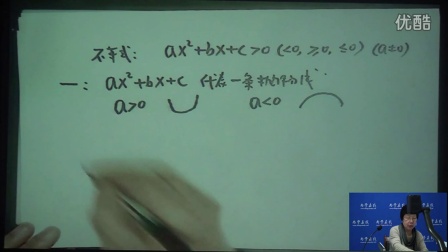 优酷
不等式: ax²+bx+c>0 (<0, ≥0, ≤0) (a≠0)
一: ax²+bx+c 代表一条抛物线
a>0 a<0